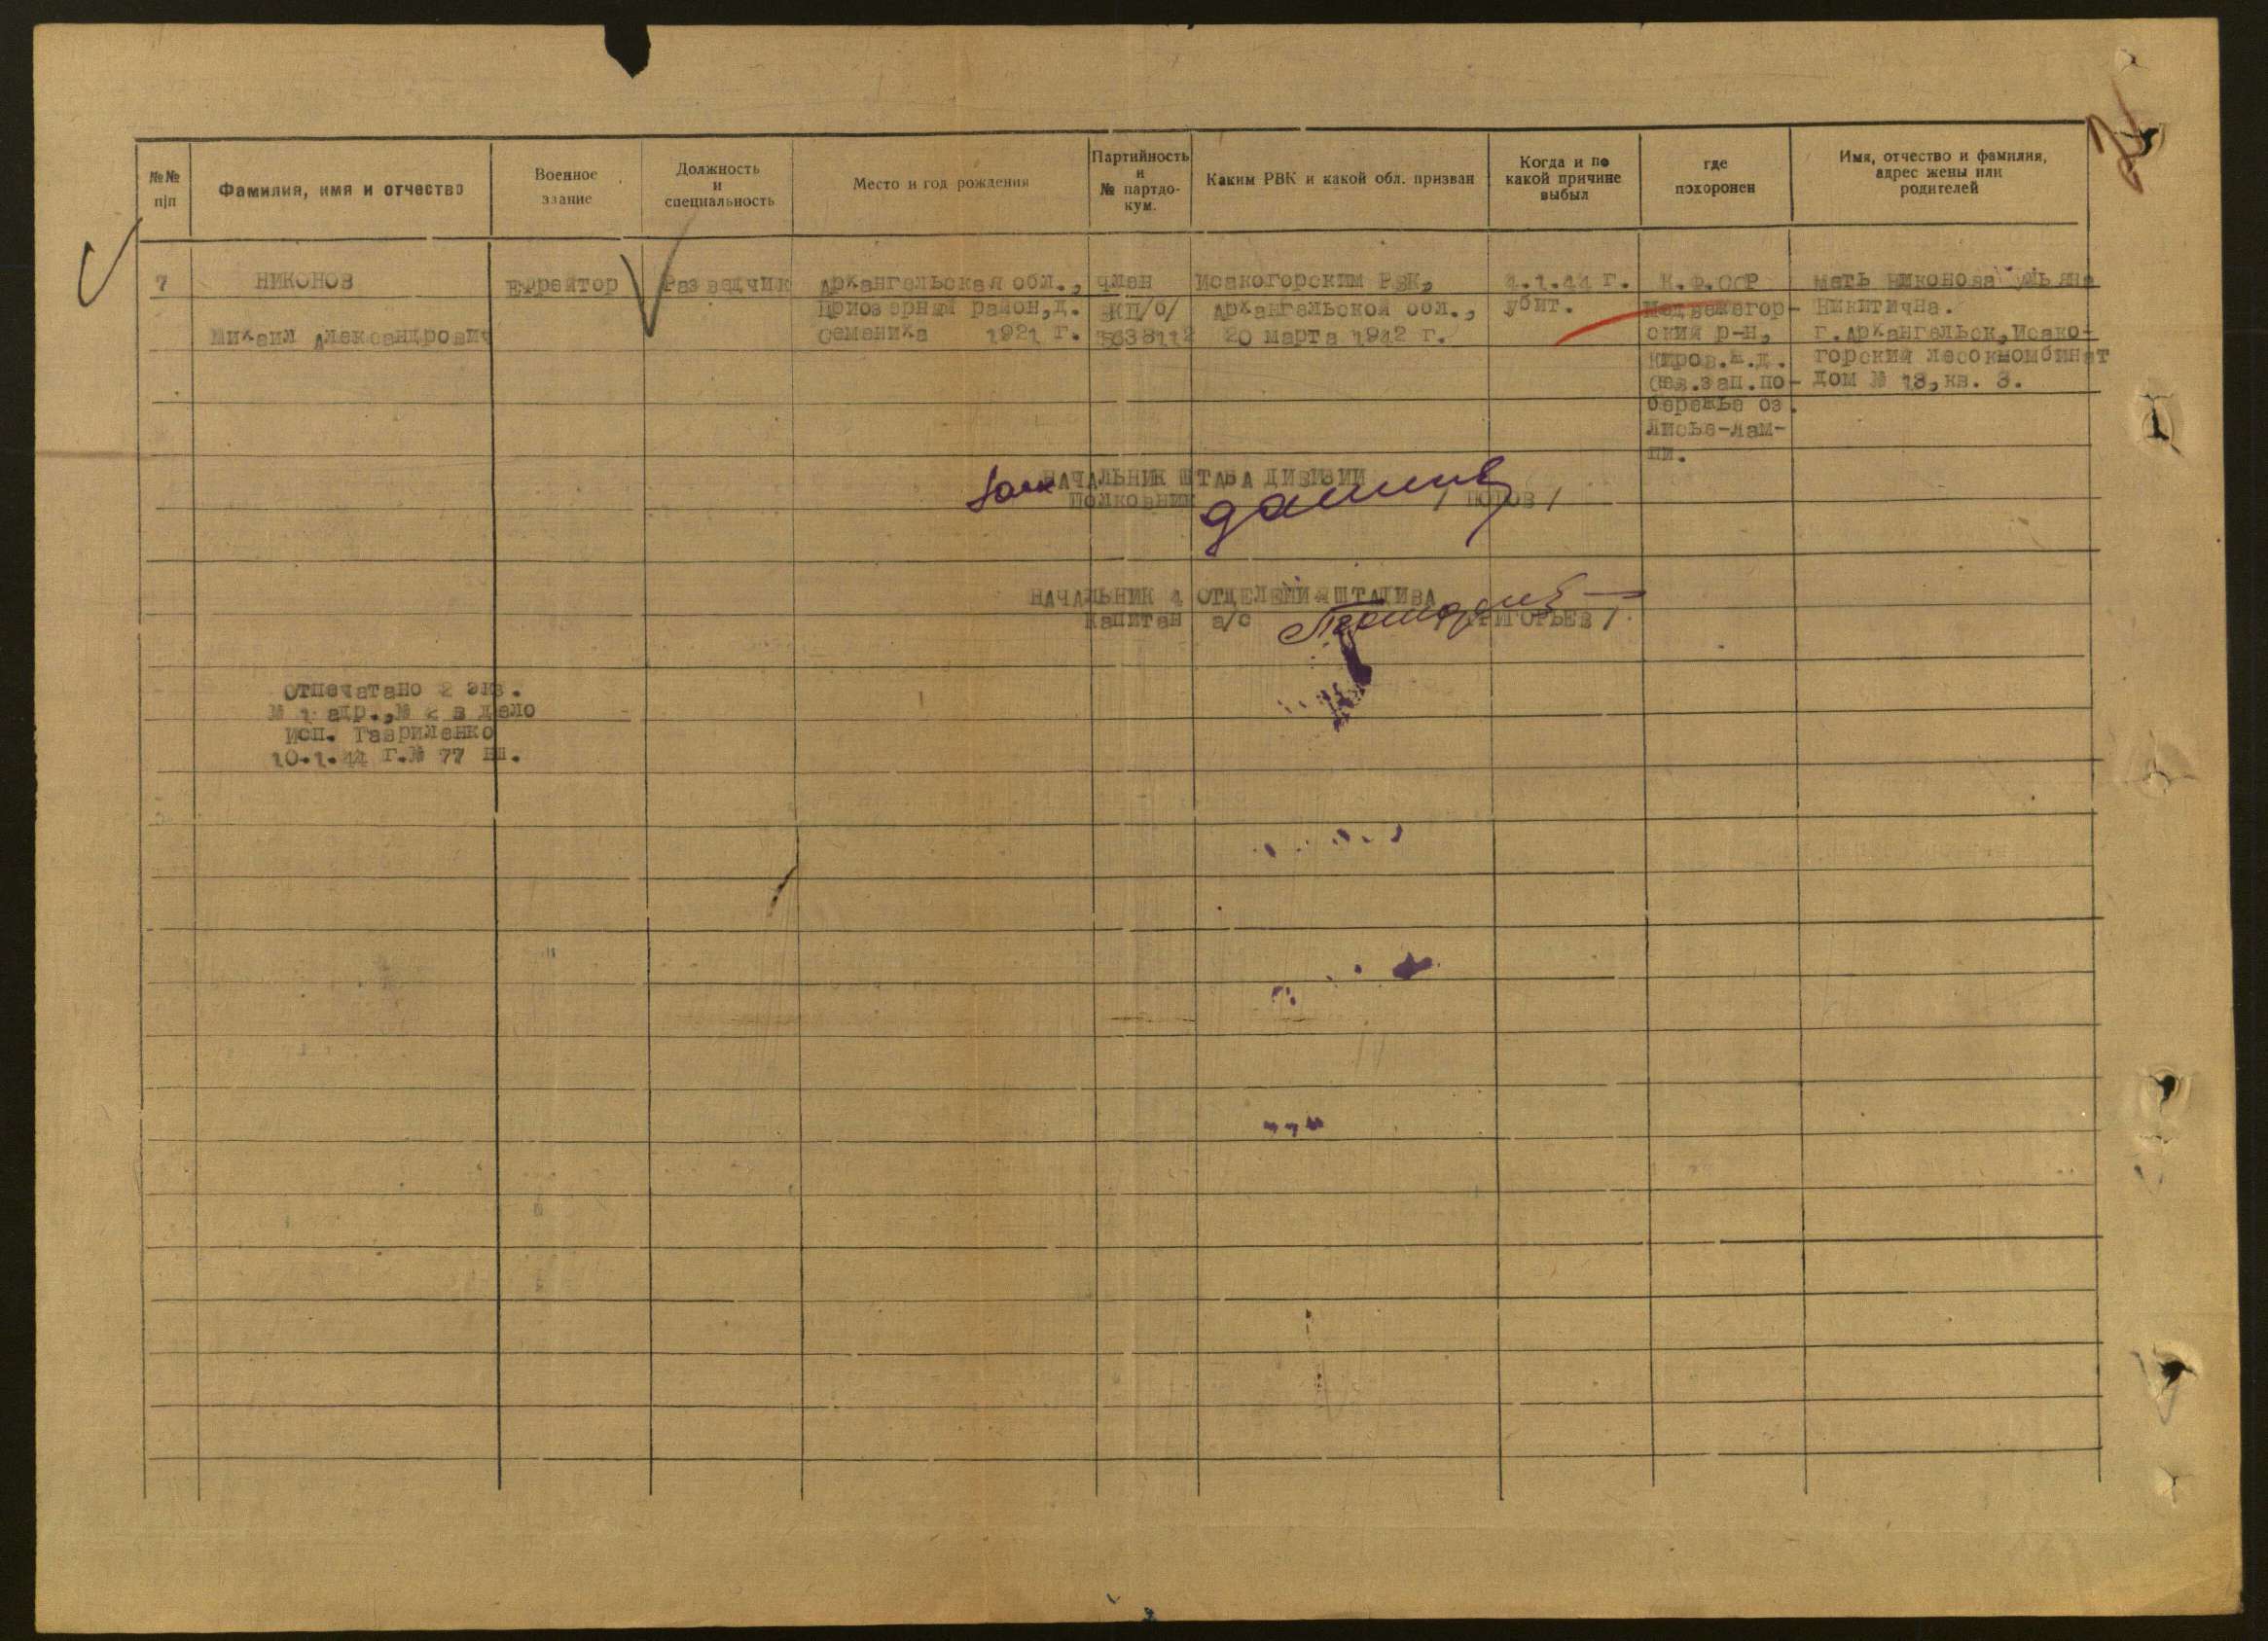 №№ п|п
Фамилия, имя и отчество
Военное звание
Должность и специальность
Место и год рождения
Партийность и № партдокум.
Каким РВК и какой обл. призван
Когда и по какой причине выбыл
где похоронен
Имя, отчество и фамилия, адрес жены или родителей
7
НИКОНОВ
Михаил Александрович
Ефрейтор
Разведчик
Архангельская обл.,
Приозерный район, д.
Семениха 1921 г.
член
ВКП/б/
Исакогорским РВК,
Архангельской обл.,
20 марта 1942 г.
4.1.44 г.
Убит.
К.Ф.ССР
Медвежегор-
ский р-н,
Киров.ж.д.
Сев.зап.по-
бережье оз.
Лисье-лам-
пи.
Мать Никонова Ульяна
Никитична.
г.Архангельск,Исако-
горский лесокмомбинат
дом № 18,кв. 3.
НАЧАЛЬНИК ШТАБА ДИВИЗИИ
Полковник / ПОПОВ /
НАЧАЛЬНИК 4 ОТДЕЛЕНИЯ ШТАДИВА
Капитан а/с / ГРИГОРЬЕВ /.
Отпечатано 2 экз.
№ 1 адр.,№ 2 в дело
Исп. Гавриленко
10.1.44 г.№ 77 нш.